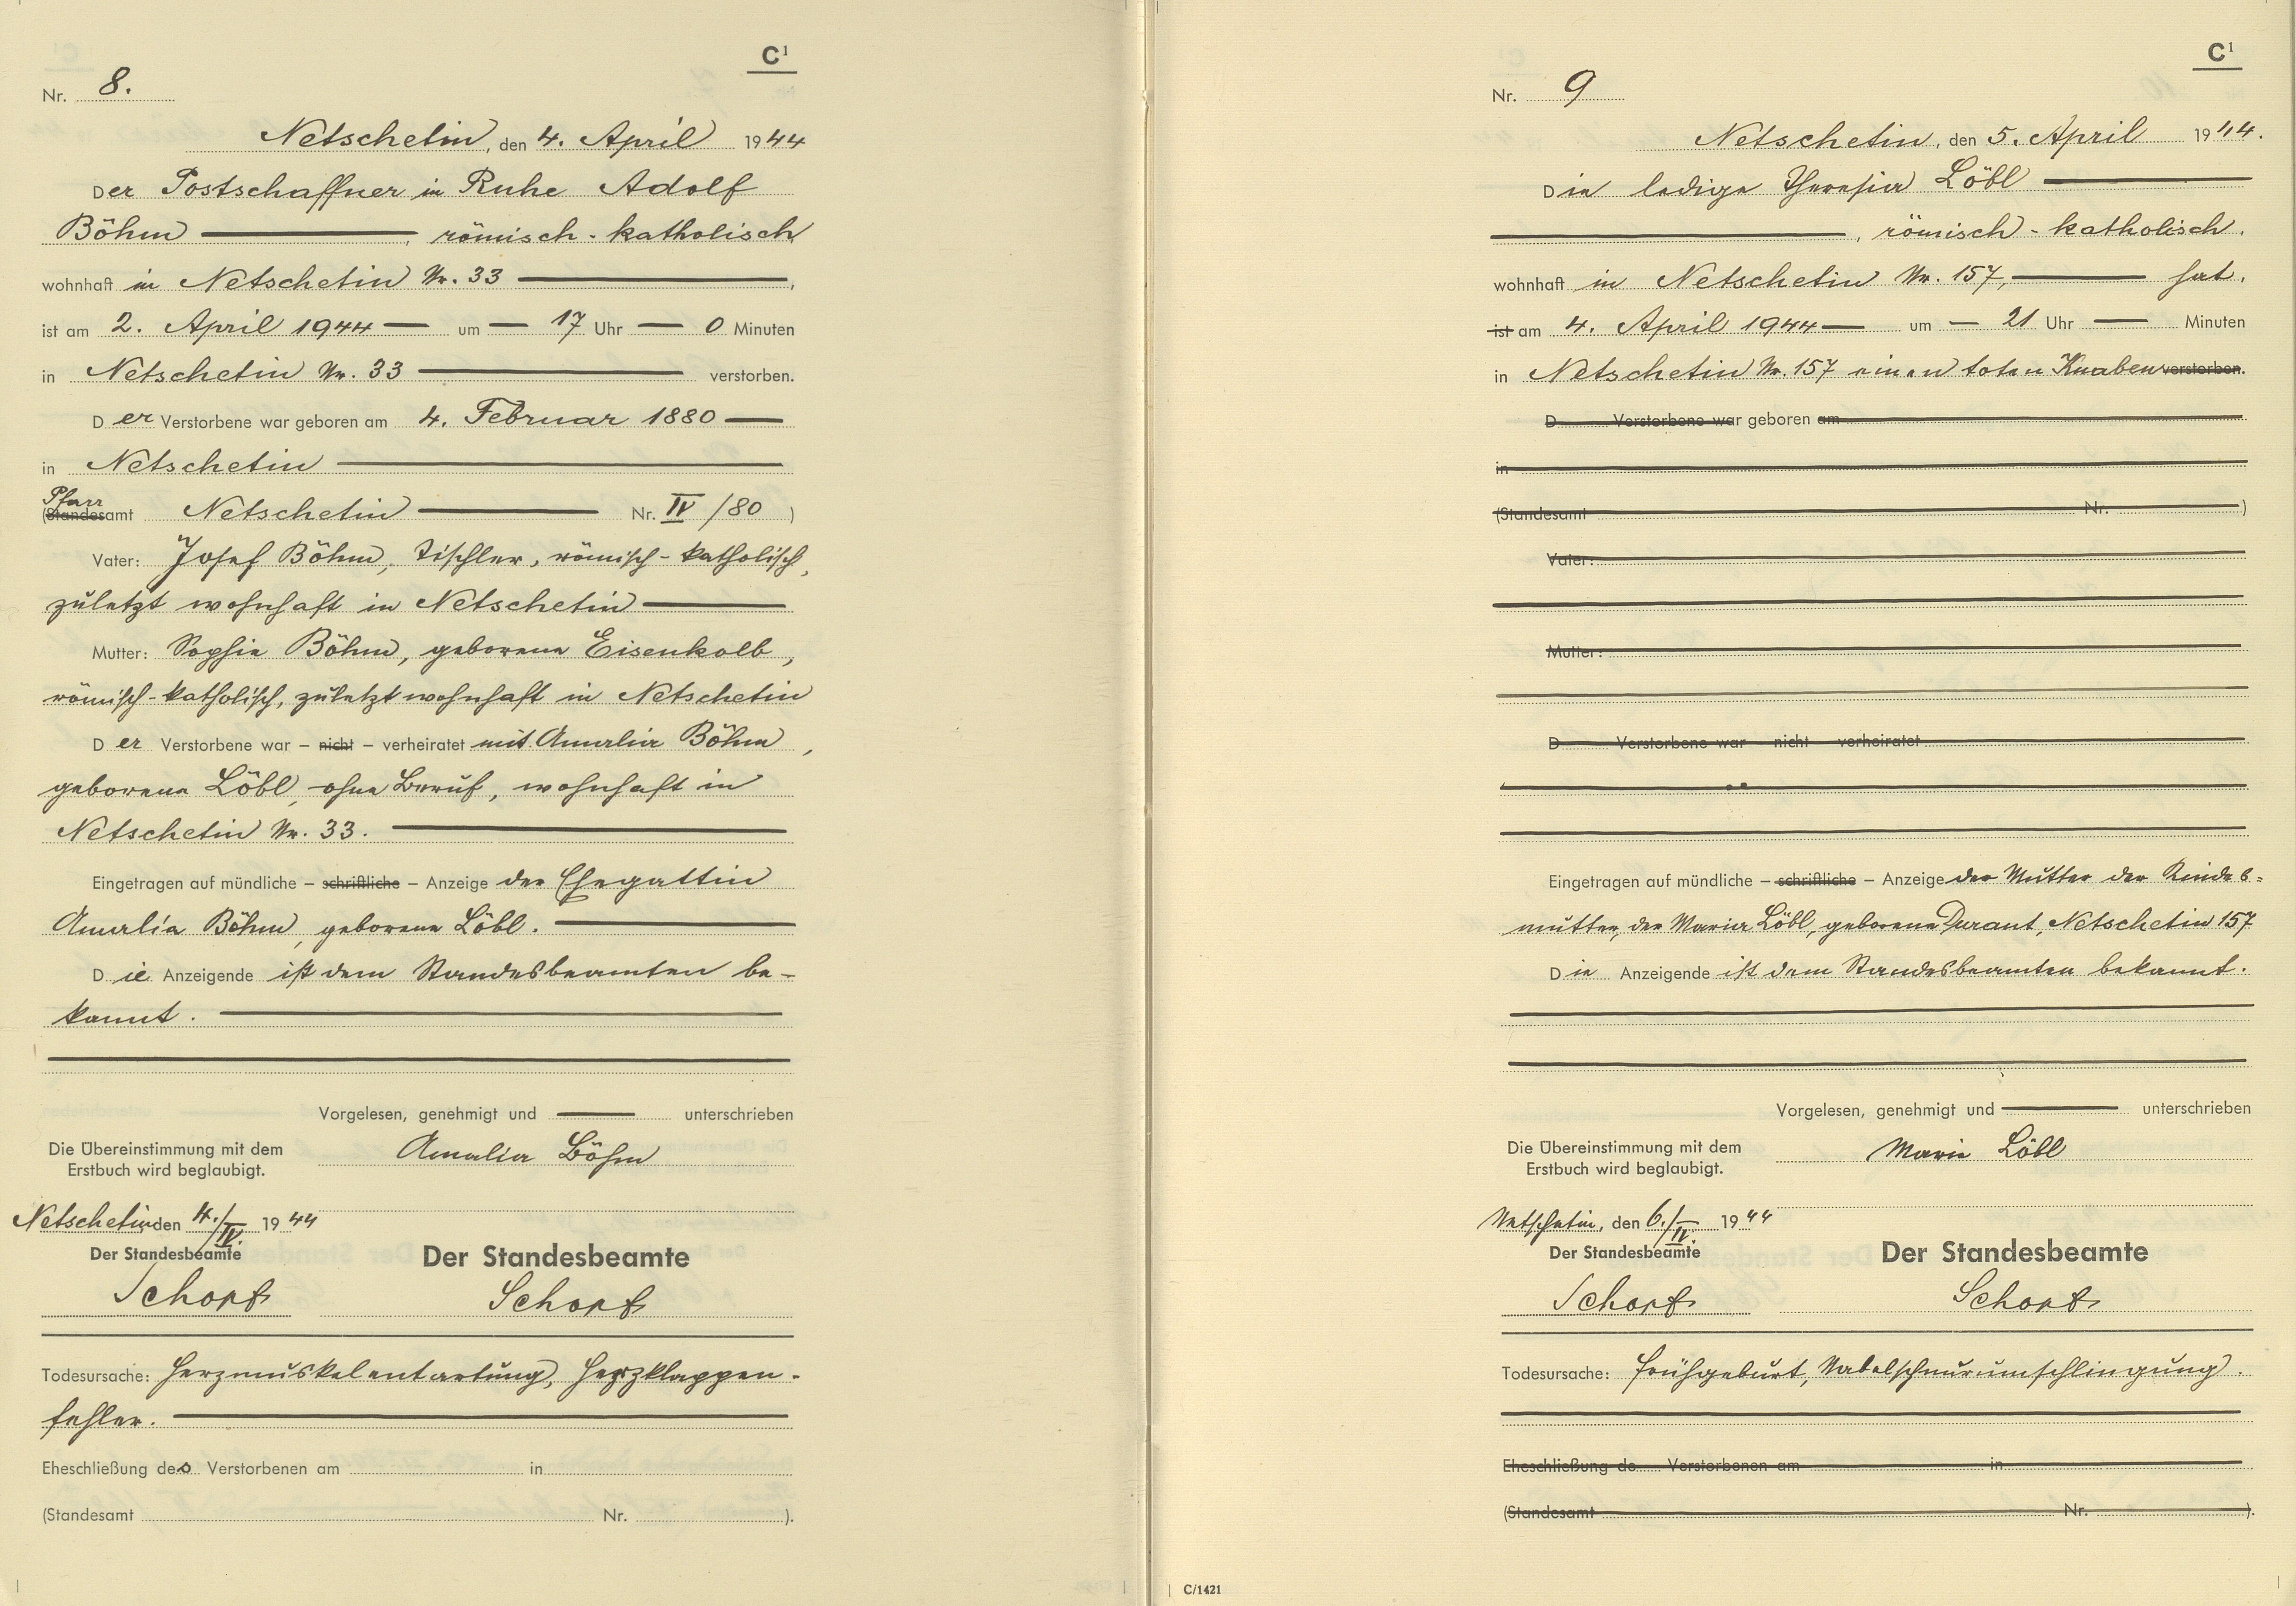 C¹
Nr. 8.
Netschetin, den 4. April 1944
Der Postschaffner in Ruhe Adolf
Böhm, römisch-katholisch
wohnhaft in Netschetin Nr. 33,
ist am 2. April 1944 um 17 Uhr 0 Minuten
in Netschetin Nr. 33 verstorben.
Der Verstorbene war geboren am 4. Februar 1880
in Netschetin
Pfarr
(Standesamt Netschetin Nr. IV/80)
Vater: Josef Böhm, Tischler, römisch-katholisch,
zuletzt wohnhaft in Netschetin
Mutter: Sophie Böhm, geborene Eisenkolb,
römisch-katholisch, zuletzt wohnhaft in Netschetin
Der Verstorbene war – nicht – verheiratet mit Amalia Böhm,
geborene Löbl, ohne Beruf, wohnhaft in
Netschetin Nr. 33.
Eingetragen auf mündliche – schriftliche – Anzeige der Ehegattin
Amalia Böhm, geborene Löbl.
Die Anzeigende ist dem Standesbeamten be-
kannt.
Vorgelesen, genehmigt und unterschrieben
Die Übereinstimmung mit dem
Erstbuch wird beglaubigt.
Amalia Böhm
Netschetin, den 4./IV. 1944
Der Standesbeamte
Der Standesbeamte
Schopf
Schopf
Todesursache: Herzmuskelentartung, Herzklappen-
fehler.
Eheschließung des Verstorbenen am in
(Standesamt Nr. ).
C¹
Nr. 9
Netschetin, den 5. April 1944.
Die ledige Theresia Löbl
, römisch-katholisch,
wohnhaft in Netschetin Nr. 157, hat,
ist am 4. April 1944 um 21 Uhr Minuten
in Netschetin Nr. 157 einen toten Knaben verstorben.
D Verstorbene war geboren am
in
(Standesamt Nr. )
Vater:
Mutter:
D Verstorbene war nicht verheiratet
Eingetragen auf mündliche – schriftliche – Anzeige der Mutter der Kindes=
mutter, der Maria Löbl, geborene Durant, Netschetin 157
Die Anzeigende ist dem Standesbeamten bekannt.
Vorgelesen, genehmigt und unterschrieben
Die Übereinstimmung mit dem
Erstbuch wird beglaubigt.
Marie Löbl
Netschetin, den 6./IV. 1944
Der Standesbeamte
Der Standesbeamte
Schopf
Schopf
Todesursache: Frühgeburt, Nabelschnurumschlingung.
Eheschließung de Verstorbenen am in
(Standesamt Nr. ).
C/1421